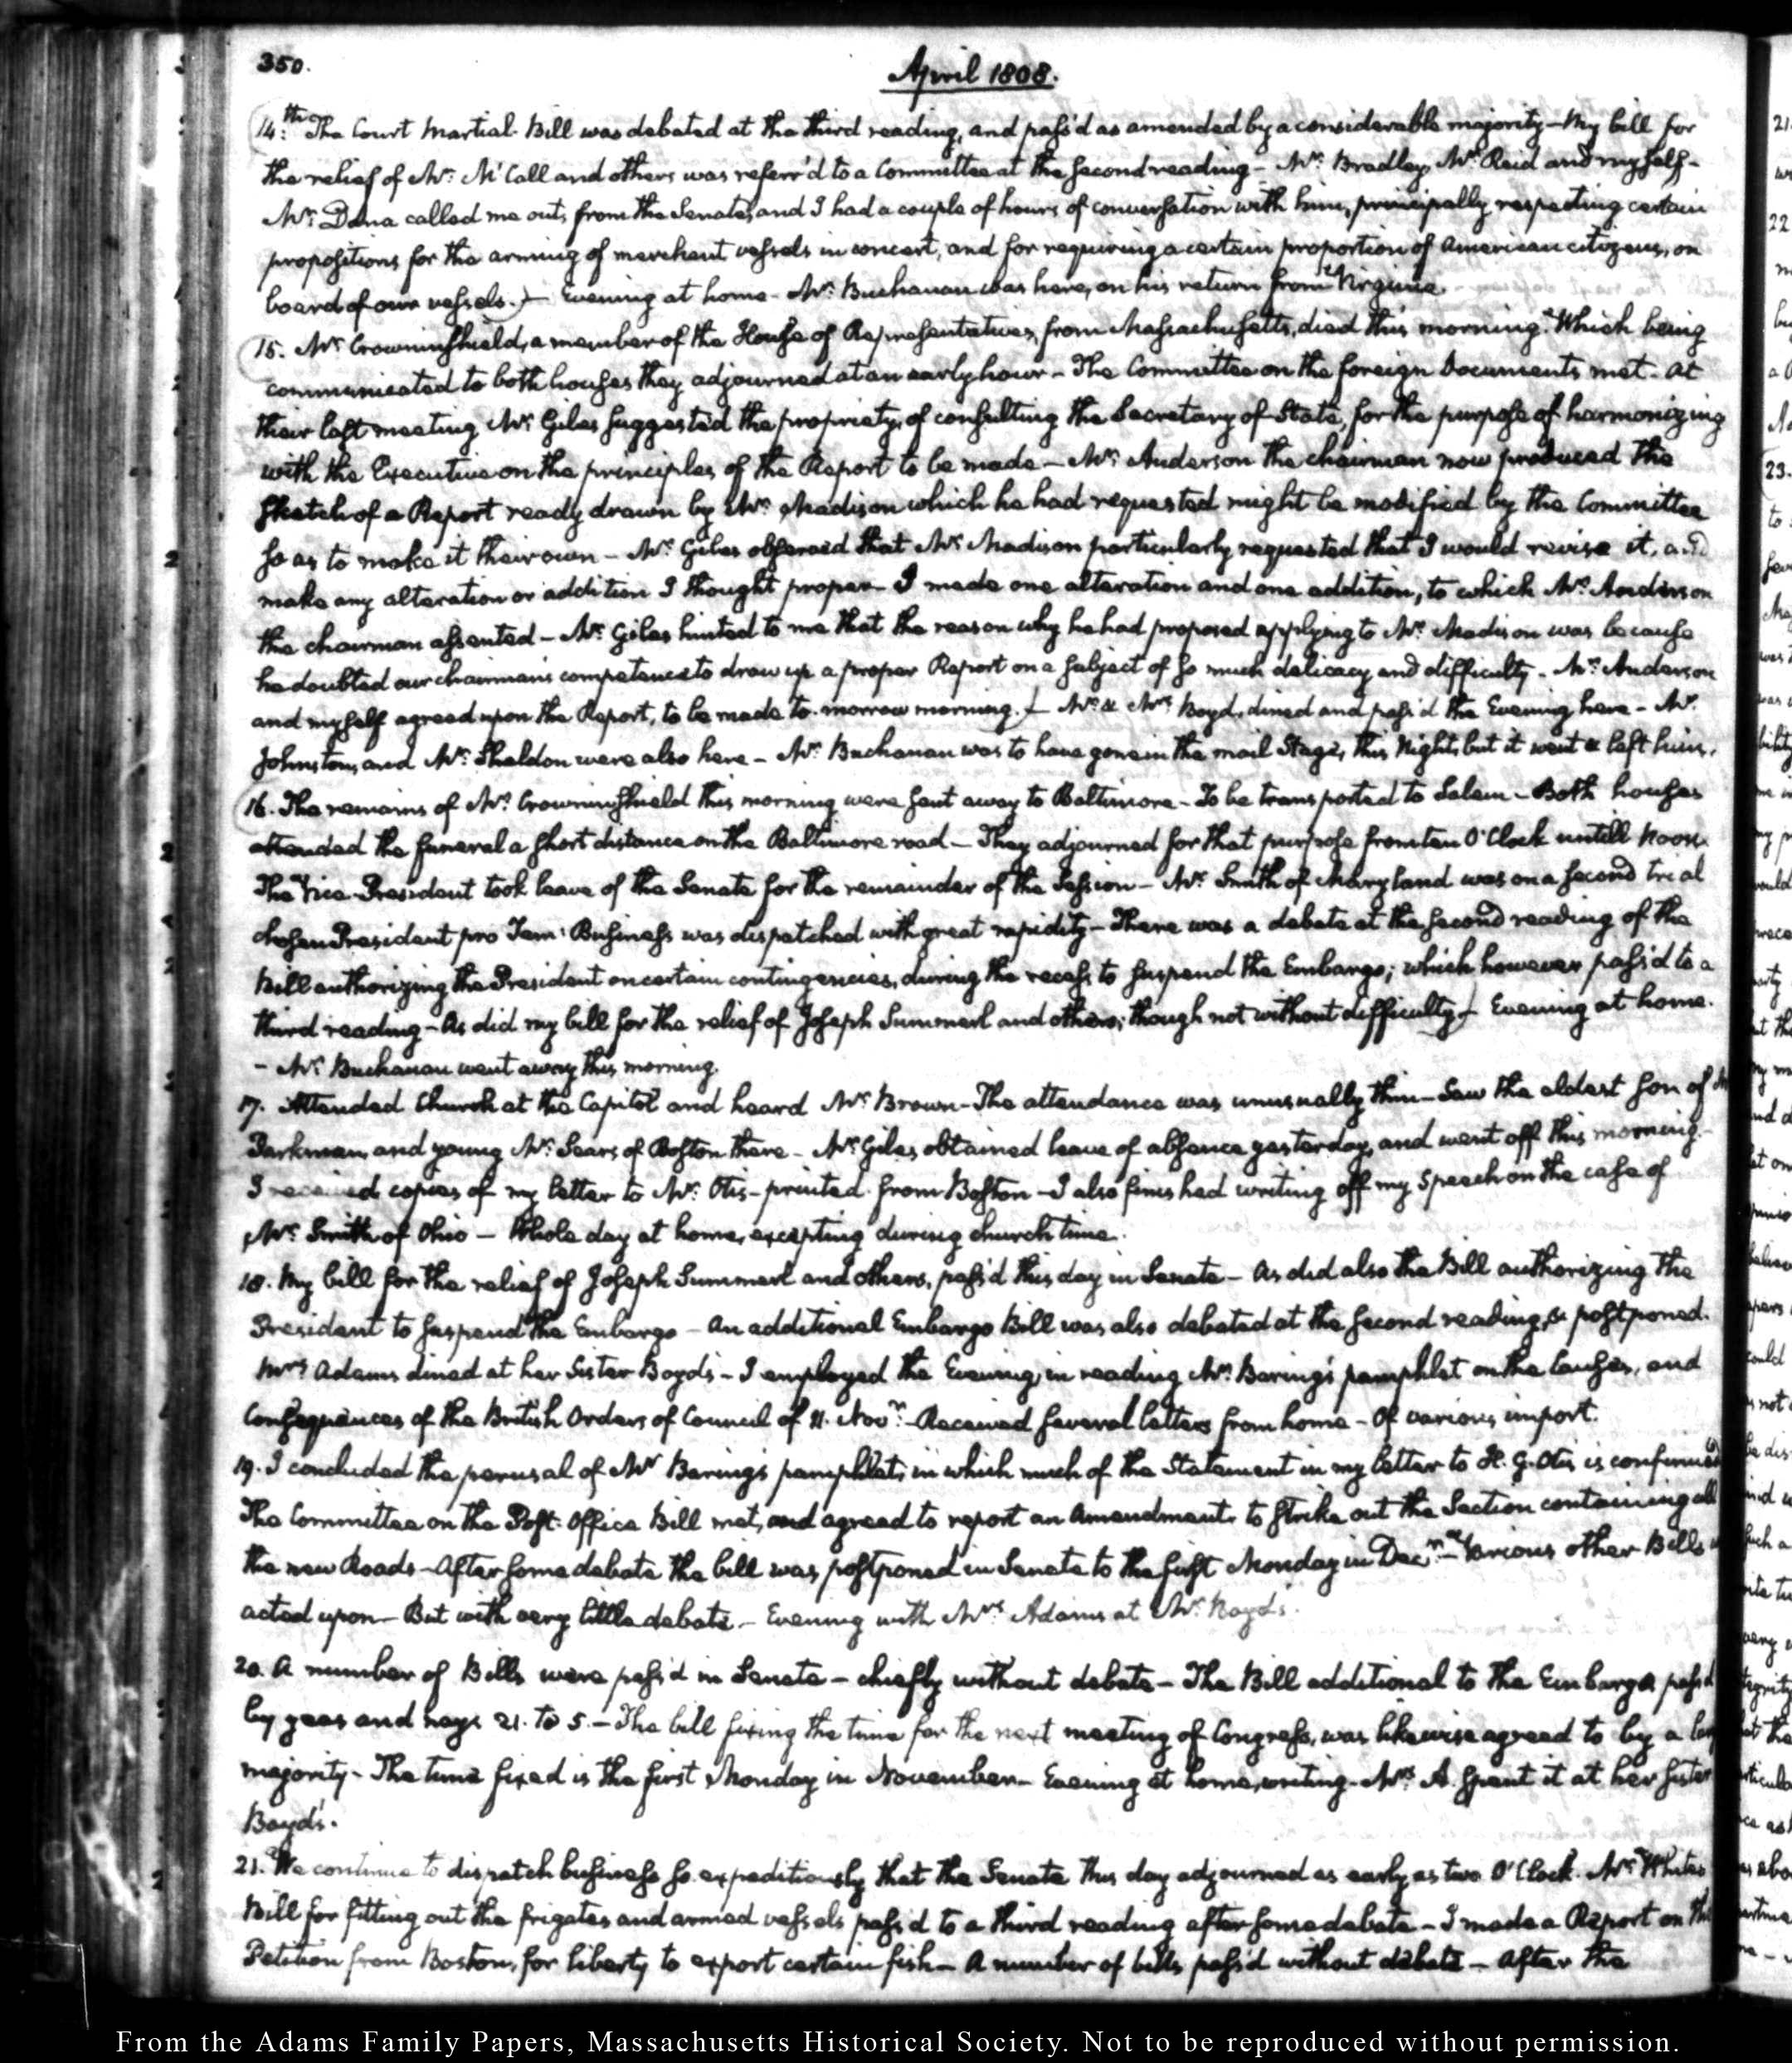 350.
April 1808.
14.th The Court Martial Bill was debated at the third reading, and pass'd as amended by a considerable majority — My bill for
the relief of Mr: M'Call and others was referr'd to a Committee at the second reading — Mr: Bradley, Mr. Reid and myself —
Mr: Dana called me out, from the Senate, and I had a couple of hours of conversation with him, principally respecting certain
propositions for the arming of merchant vessels in concert, and for requiring a certain proportion of American citizens, on
board of our vessels. — Evening at home — Mr: Buchanan was here, on his return from Virginia.
15. Mr. Crowninshield, a member of the House of Representatives, from Massachusetts, died this morning. Which being
communicated to both houses they adjourned at an early hour — The Committee on the foreign Documents met — At
their last meeting Mr: Giles suggested the propriety, of consulting the Secretary of State, for the purpose of harmonizing
with the Executive on the principles of the Report to be made — Mr: Anderson the chairman now produced the
sketch of a Report ready drawn by Mr. Madison which he had requested might be modified by the Committee
so as to make it their own — Mr. Giles observed that Mr. Madison particularly requested that I would revise it, and
make any alteration or addition I thought proper — I made one alteration and one addition, to which Mr. Anderson
the chairman assented — Mr. Giles hinted to me that the reason why he had proposed applying to Mr. Madison was because
he doubted our chairman's competence to draw up a proper Report on a subject of so much delicacy and difficulty — Mr. Anderson
and myself agreed upon the Report, to be made to-morrow morning. — Mr. & Mrs. Boyd, dined and pass'd the Evening here — Mr.
Johnston, and Mr. Sheldon were also here — Mr. Buchanan was to have gone in the mail Stage, this Night, but it went & left him.
16. The remains of Mr. Crowninshield this morning were sent away to Baltimore — To be transported to Salem — Both houses
attended the funeral a short distance on the Baltimore road — They adjourned for that purpose from ten O'Clock untill Noon.
The Vice-President took leave of the Senate for the remainder of the Session — Mr. Smith of Maryland was on a second trial
chosen President pro Tem: Business was dispatched with great rapidity — There was a debate at the second reading of the
Bill authorizing the President on certain contingencies, during the recess, to suspend the Embargo; which however pass'd to a
third reading — As did my bill for the relief of Joseph Summerl and others; though not without difficulty — Evening at home.
— Mr. Buchanan went away this morning.
17. Attended Church at the Capitol and heard Mr. Brown — The attendance was unusually thin — Saw the eldest son of
Parkman, and young Mr: Sears of Boston there — Mr. Giles obtained leave of absence yesterday, and went off this morning.
I received copies of my letter to Mr: Otis — printed from Boston — I also finished writing off my Speech on the case of
Mr. Smith of Ohio — Whole day at home, excepting during church time.
18. My bill for the relief of Joseph Summerl and others, pass'd this day in Senate — As did also the Bill authorizing the
President to suspend the Embargo — An additional Embargo Bill was also debated at the second reading, & postponed.
Mrs. Adams dined at her Sister Boyd's — I employed the Evening, in reading Mr. Baring's pamphlet on the Causes, and
Consequences of the British Orders of Council of 11. Novr. — Received several letters from home — Of various import.
19. I concluded the perusal of Mr Baring's pamphlet, in which much of the Statement in my letter to H. G. Otis is confirmed
The Committee on the Post-Office Bill met, and agreed to report an Amendment, to strike out the Section containing all
the new Roads — After some debate the bill was postponed in Senate to the first Monday in Decr. — Various other Bills
acted upon — But with very little debate — Evening with Mrs Adams at Mr. Boyd's.
20. A number of Bills were pass'd in Senate — chiefly without debate — The Bill additional to the Embargo pass'd
by yeas and nays 21. to 5. — The bill fixing the time for the next meeting of Congress, was likewise agreed to by a
majority — The time fixed is the first Monday in November — Evening at home, writing — Mrs A. spent it at her sister
Boyd's.
21. We continue to dispatch business so expeditiously that the Senate this day adjourned as early as two O'Clock. Mr. White's
Bill for fitting out the frigates and armed vessels pass'd to a third reading after some debate — I made a Report on the
Petition from Boston, for liberty to export certain fish — A number of bills pass'd without debate — After the
From the Adams Family Papers, Massachusetts Historical Society. Not to be reproduced without permission.